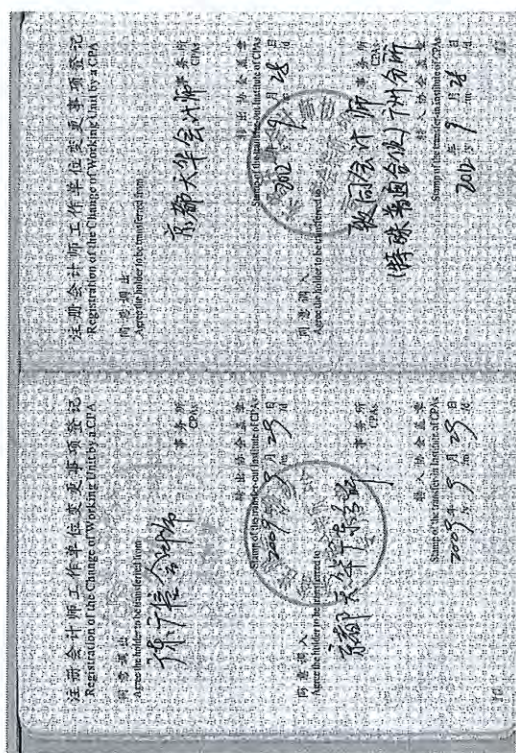 注册会计师工作单位变更事项登记
Registration of the Change of Working Unit by a CPA
同意调出
Agree the holder to be transferred from
事务所
CPAs
转出协会盖章
Stamp of the transfer-out Institute of CPAs
2009年9月29日
/y /m /d
同意调入
Agree the holder to be transferred to
事务所
CPAs
转入协会盖章
Stamp of the transfer-in Institute of CPAs
2009年9月29日
/y /m /d
10
注册会计师工作单位变更事项登记
Registration of the Change of Working Unit by a CPA
同意调出
Agree the holder to be transferred from
京都天华会计师事务所
CPAs
转出协会盖章
Stamp of the transfer-out Institute of CPAs
2012年9月28日
/y /m /d
同意调入
Agree the holder to be transferred to
致同会计师事务所
CPAs
(特殊普通合伙)
转入协会盖章
Stamp of the transfer-in Institute of CPAs
2012年9月28日
/y /m /d
11